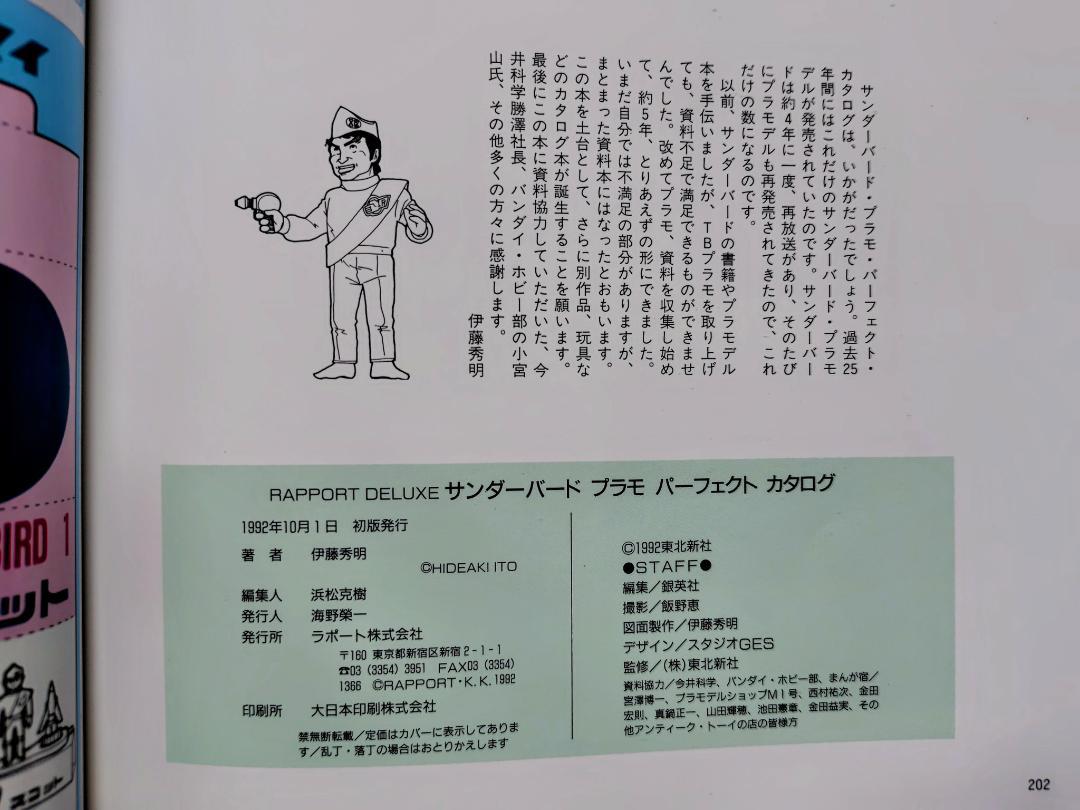 サンダーバード・プラモ・パーフェクト・
カタログは、いかがだったでしょう。過去25
年間にはこれだけのサンダーバード・プラモ
デルが発売されていたのです。サンダーバー
ドは約4年に一度、再放送があり、そのたび
にプラモデルも再発売されてきたので、これ
だけの数になるのです。
以前、サンダーバードの書籍やプラモデル
本を手伝いましたが、TBプラモを取り上げ
ても、資料不足で満足できるものができませ
んでした。改めてプラモ、資料を収集し始め
て、約5年、とりあえずの形にできました。
いまだ自分では不満足の部分がありますが、
まとまった資料本にはなったとおもいます。
この本を土台として、さらに別作品、玩具な
どのカタログ本が誕生することを願います。
最後にこの本に資料協力していただいた、今
井科学勝澤社長、バンダイ・ホビー部の小宮
山氏、その他多くの方々に感謝します。
伊藤秀明
RAPPORT DELUXE サンダーバード プラモ パーフェクト カタログ
1992年10月1日 初版発行
著 者 伊藤秀明
©HIDEAKI ITO
編集人 浜松克樹
発行人 海野榮一
発行所 ラポート株式会社
〒160 東京都新宿区新宿2-1-1
☎03(3354)3951 FAX03(3354)
1366 ©RAPPORT・K.K.1992
印刷所 大日本印刷株式会社
禁無断転載/定価はカバーに表示してありま
す/乱丁・落丁の場合はおとりかえします
©1992東北新社
●STAFF●
編集/銀英社
撮影/飯野恵
図面製作/伊藤秀明
デザイン/スタジオGES
監修/(株)東北新社
資料協力/今井科学、バンダイ・ホビー部、まんが宿/
宮澤博一、プラモデルショップM1号、西村祐次、金田
宏則、真鍋正一、山田輝穂、池田憲章、金田益実、その
他アンティーク・トーイの店の皆様方
202
BIRD 1
ット
スコット